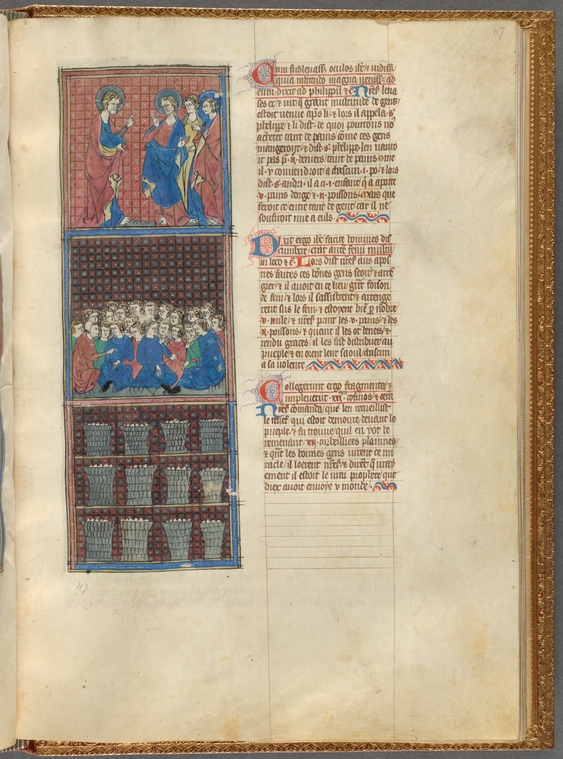 47
Cum sublevasset oculos ihs et vidisset
quia multitudo magna venisset ad
eum dixit ad philippū &c Nrēs leva
ses ex & vit q̄ grant multitude de gens
estoit venue apѕ li & lors il appela .s.
phelippe & li dist. de quoi pourrons no
achater tant de pains come ces gens
mangeront & dist .s. phelippe len nauro
it pas p̄ .ii. deniers tant de pains come
il
dist .s. andri il a ci .i. enfant q̄ a aporte
.v. pains dorge & .ii. poissons mais que
seroit ce entre tant de gent car il ne
souffiroit mie a euls
Dixit ergo ihs facite homines dis
cumbere erat autē fenū multū
in loco & c̄ Lors dist nrēs aus apos
tres faites ces bonnes gens seoir
il avoit en ce lieu grāt foison
de fein & lors il sassistrent
sus le fein & estoyent bien p̄ nōbre
.v. mile & nrēs print les .v. pains & les
.ii. poissons & quant il les ot benois &
rendu graces il les fist distribuer au
pueple & en orent leur saoul chascun
a sa volente
Collegerunt ergo fragmenta &
impleverunt .xii. cofinos &
nrēs comanda que len recueillist
le relief qui estoit demore devant le
pueple & fu trouve quil en y ot de
remenant .xii. corbeillees plainnes
& q̄nt les bonnes gens virent ce mi
racle il loerent nrēs & dirēt q̄ vray
ement il estoit le vrai prophete que
diex avoit envoye u monde.
47